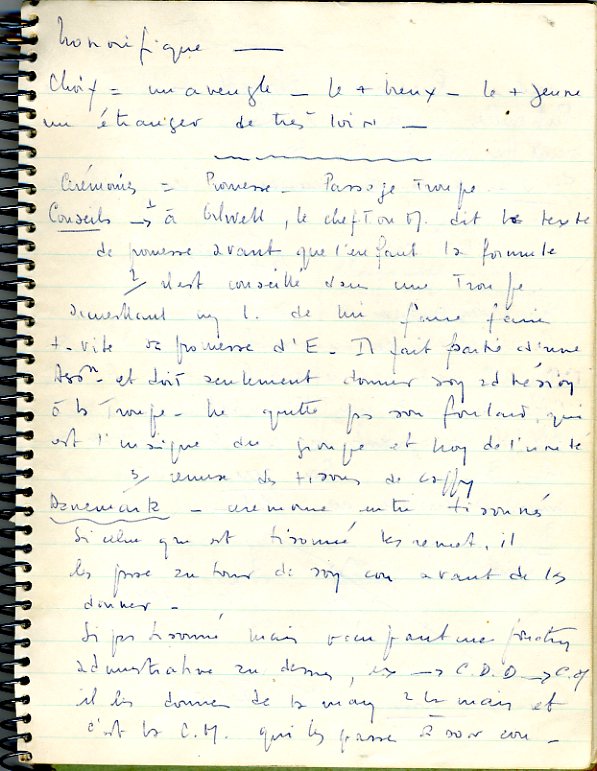 honorifique —
Choix = un aveugle – le + vieux – le + jeune
un étranger de très loin —
Cérémonies = Promesse – Passage Troupe
Conseils → 1 à Gilwell, le chef Ton M. dit le texte
de promesse avant que l'enfant la formule
2/ il est conseillé dans une Troupe
de lui faire faire
+ vite sa promesse d'E – Il fait partie d'une
Asson et doit seulement donner son adhésion
à la Troupe – Ne quitte pas son foulard, qui
est l'insigne du groupe et non de l'unité
3/ remise des tisons de
Danemark – cérémonie entre tisonnés
Si celui qui est tisonné les remet, il
les pose autour de son cou avant de les
donner –
Si pas tisonné mais occupant une fonction
administrative au dessus, ex → C.D.D → C.M
il les donne de la main à la main et
c'est le C.M. qui les passe à son cou –